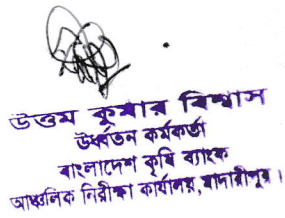 উত্তম কুমার বিশ্বাস
উর্ধ্বতন কর্মকর্তা
বাংলাদেশ কৃষি ব্যাংক
আঞ্চলিক নিরীক্ষা কার্যালয়, মাদারীপুর।